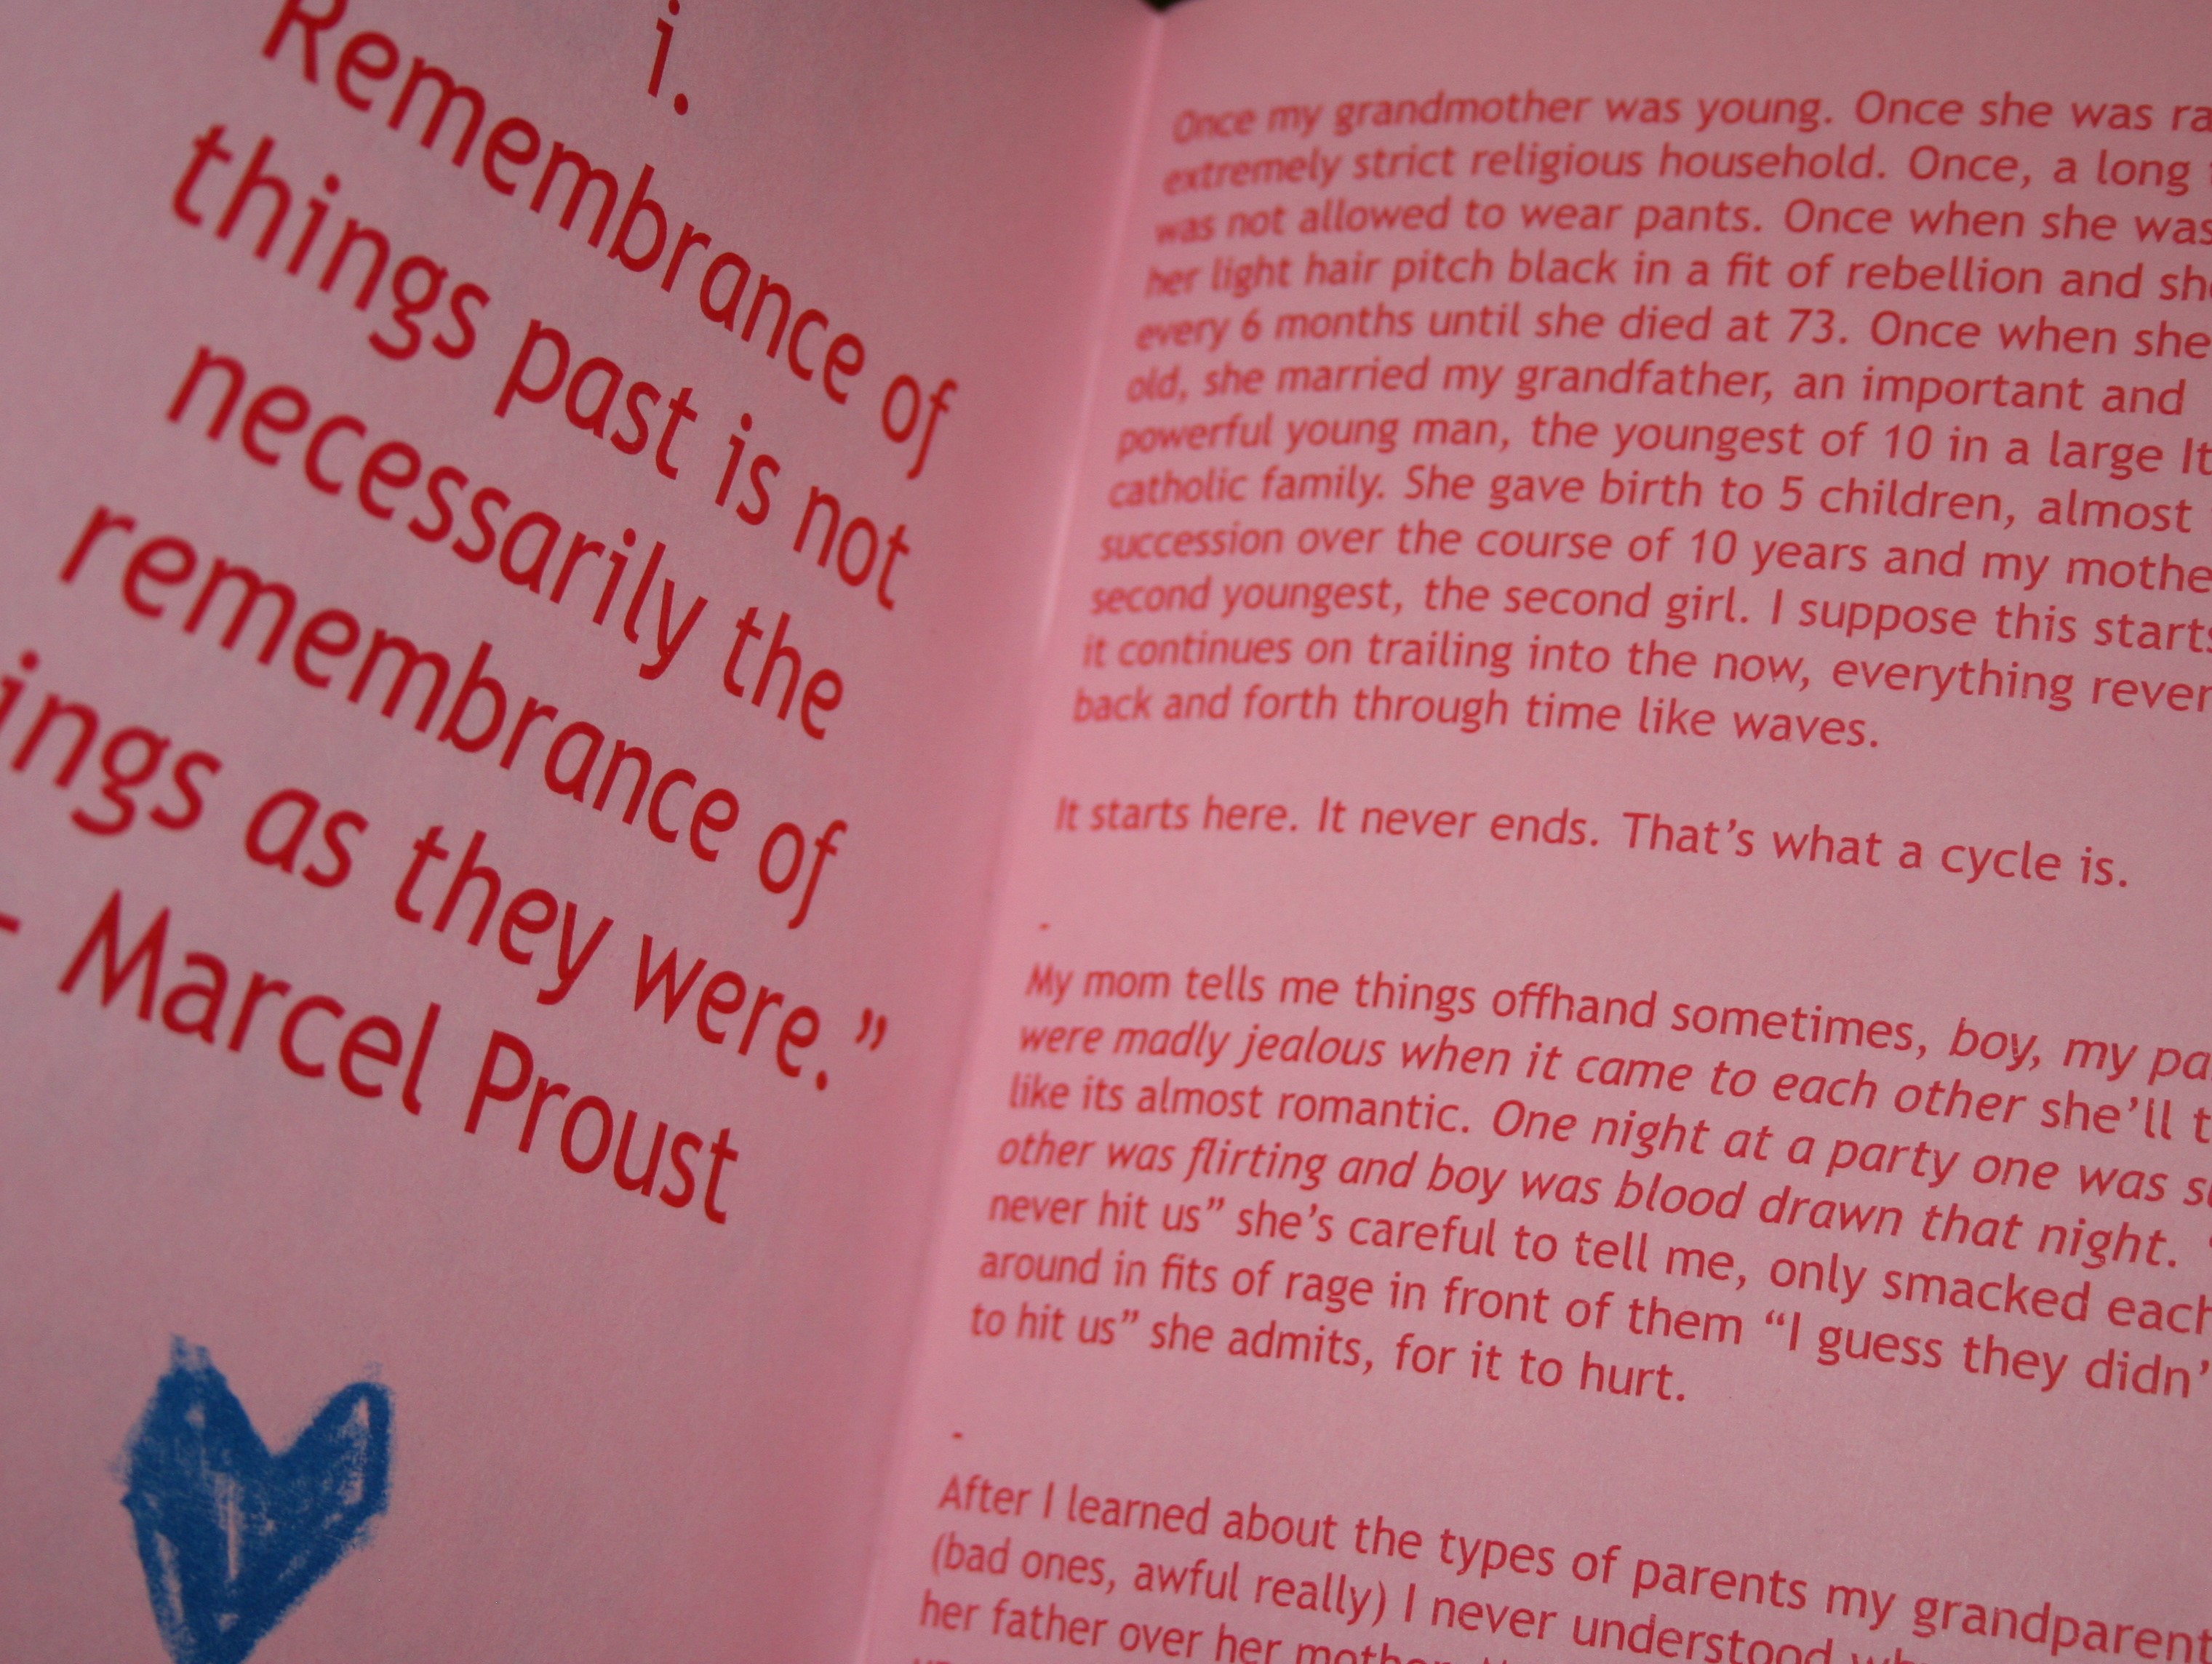 i.
Remembrance of
things past is not
necessarily the
remembrance of
as they were.”
- Marcel Proust
Once my grandmother was young. Once she was
extremely strict religious household. Once, a long
was not allowed to wear pants. Once when she was
her light hair pitch black in a fit of rebellion and
every 6 months until she died at 73. Once when she
old, she married my grandfather, an important and
powerful young man, the youngest of 10 in a large
catholic family. She gave birth to 5 children, almost
succession over the course of 10 years and my
second youngest, the second girl. I suppose this starts
it continues on trailing into the now, everything
back and forth through time like waves.
It starts here. It never ends. That’s what a cycle is.
-
My mom tells me things offhand sometimes, boy, my
were madly jealous when it came to each other she’ll
like its almost romantic. One night at a party one was
other was flirting and boy was blood drawn that night.
never hit us” she’s careful to tell me, only smacked each
around in fits of rage in front of them “I guess they
to hit us” she admits, for it to hurt.
-
After I learned about the types of parents my
(bad ones, awful really) I never understood
her father over her